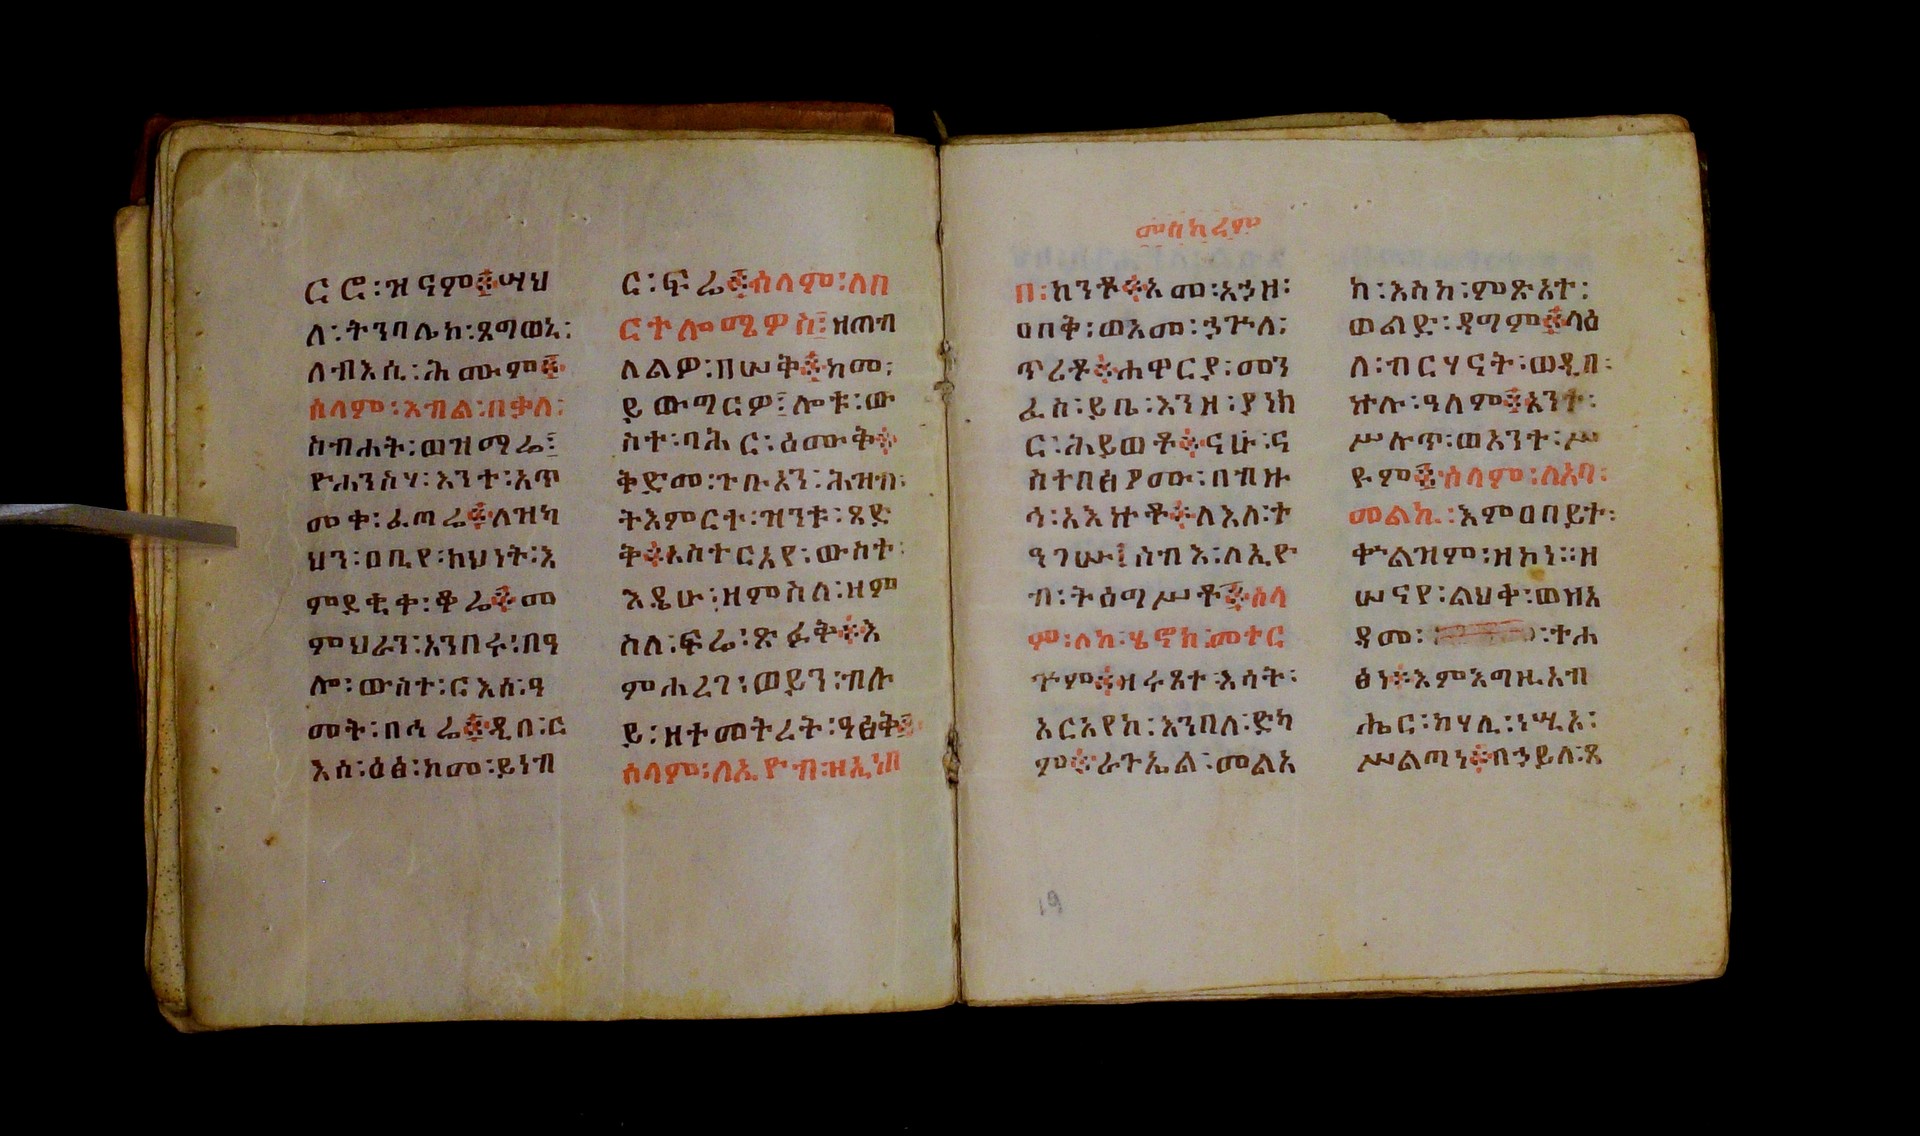 ርሮ፡ዝናም፨ሣህ
ለ፡ትንባሌከ፡ጸግወኒ፡
ለብእሲ፡ሕሙም፨
ሰላም፡እብል፡በቃለ፡
ስብሐት፡ወዝማሬ፤
ዮሐንስሃ፡እንተ፡አጥ
መቀ፡ፈጣሬ፨ለዝካ
ህን፡ዐቢየ፡ክህነት፡እ
ምደቂቀ፡ቆሬ፨መ
ምህራን፡አንበሩ፡በዓ
ሎ፡ውስተ፡ርእሰ፡ዓ
መት፡በሓሬ፨ዲበ፡ር
እስ፡ዕፅ፡ከመ፡ይነብ
ር፡ፍሬ፨ሰላም፡ለበ
ርተሎሜዎስ፤ዘጠብ
ለልዎ፡በሠቅ፨ከመ፡
ይውግርዎ፤ሎቱ፡ው
ስተ፡ባሕር፡ዕሙቅ፨
ቅድመ፡ጉቡአን፡ሕዝብ፡
ትእምርተ፡ዝንቱ፡ጻድ
ቅ፨አስተርአየ፡ውስተ፡
እዴሁ፡ዘምስለ፡ዘም
ስለ፡ፍሬ፡ጽፊቅ፨እ
ምሐረገ፡ወይን፡ብሉ
ይ፡ዘተመትረት፡ዓፅቅ፨
ሰላም፡ለኢዮብ፡ዝኢነበ
መስከረም
በ፡ከንቶ፨አመ፡አኃዘ፡
ዐበቅ፡ወአመ፡ኃጕለ፡
ጥሪቶ፨ሐዋርያ፡መን
ፈስ፡ይቤ፡እንዘ፡ያነክ
ር፡ሕይወቶ፨ናሁ፡ና
ስተበፅዖሙ፡በብዙ
ኅ፡አእኵቶ፨ለእለ፡ተ
ዓገሡ፤ሰብእ፡ለኢዮ
ብ፡ትዕግሥቶ፨ሰላ
ም፡ለከ፡ሄኖክ፡መተር
ጕም፨ዛሩጸተ፡እሳት፡
አርአየከ፡እንበለ፡ድካ
ም፨ራጉኤል፡መልአ
ከ፡እስከ፡ምጽአተ፡
ወልድ፡ዳግም፨ላዕ
ለ፡ብርሃናት፡ወዲበ፡
ኵሉ፡ዓለም፨አንተ፡
ሥሉጥ፡ወአንተ፡ሥ
ዩም፨ሰላም፡ለአባ፡
መልኪ፡እምዐበይተ፡
ቍልዝም፡ዘኮነ፡፡ዘ
ሠናየ፡ልህቀ፡ወዝአ
ዳመ፡ ፡ተሐ
ፅነ፨እምእግዚአብ
ሔር፡ከሃሊ፡ነሢኦ፡
ሥልጣነ፨በኃይለ፡ጸ
19